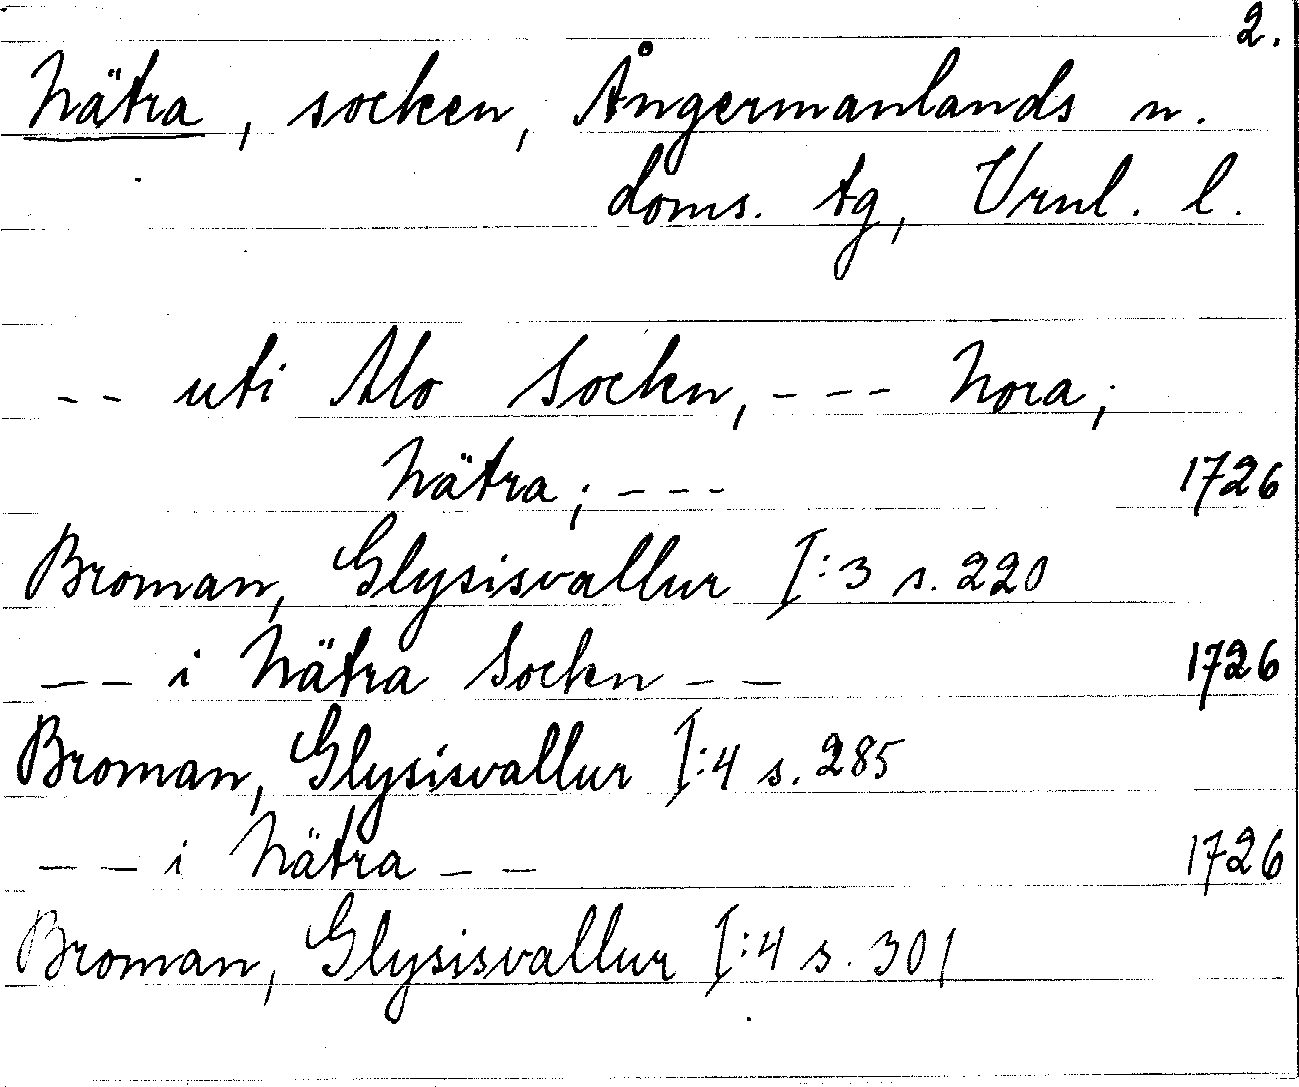 2.
Nätra, socken, Ångermanlands n.
doms. tg, Vrnl. l.
-- uti Alo Sockn, --- Nora;
Nätra; --- 1726
Broman, Glysisvallur I:3 s. 220
-- i Nätra Sockn -- 1726
Broman, Glysisvallur I:4 s. 285
-- i Nätra -- 1726
Broman, Glysisvallur I:4 s. 301